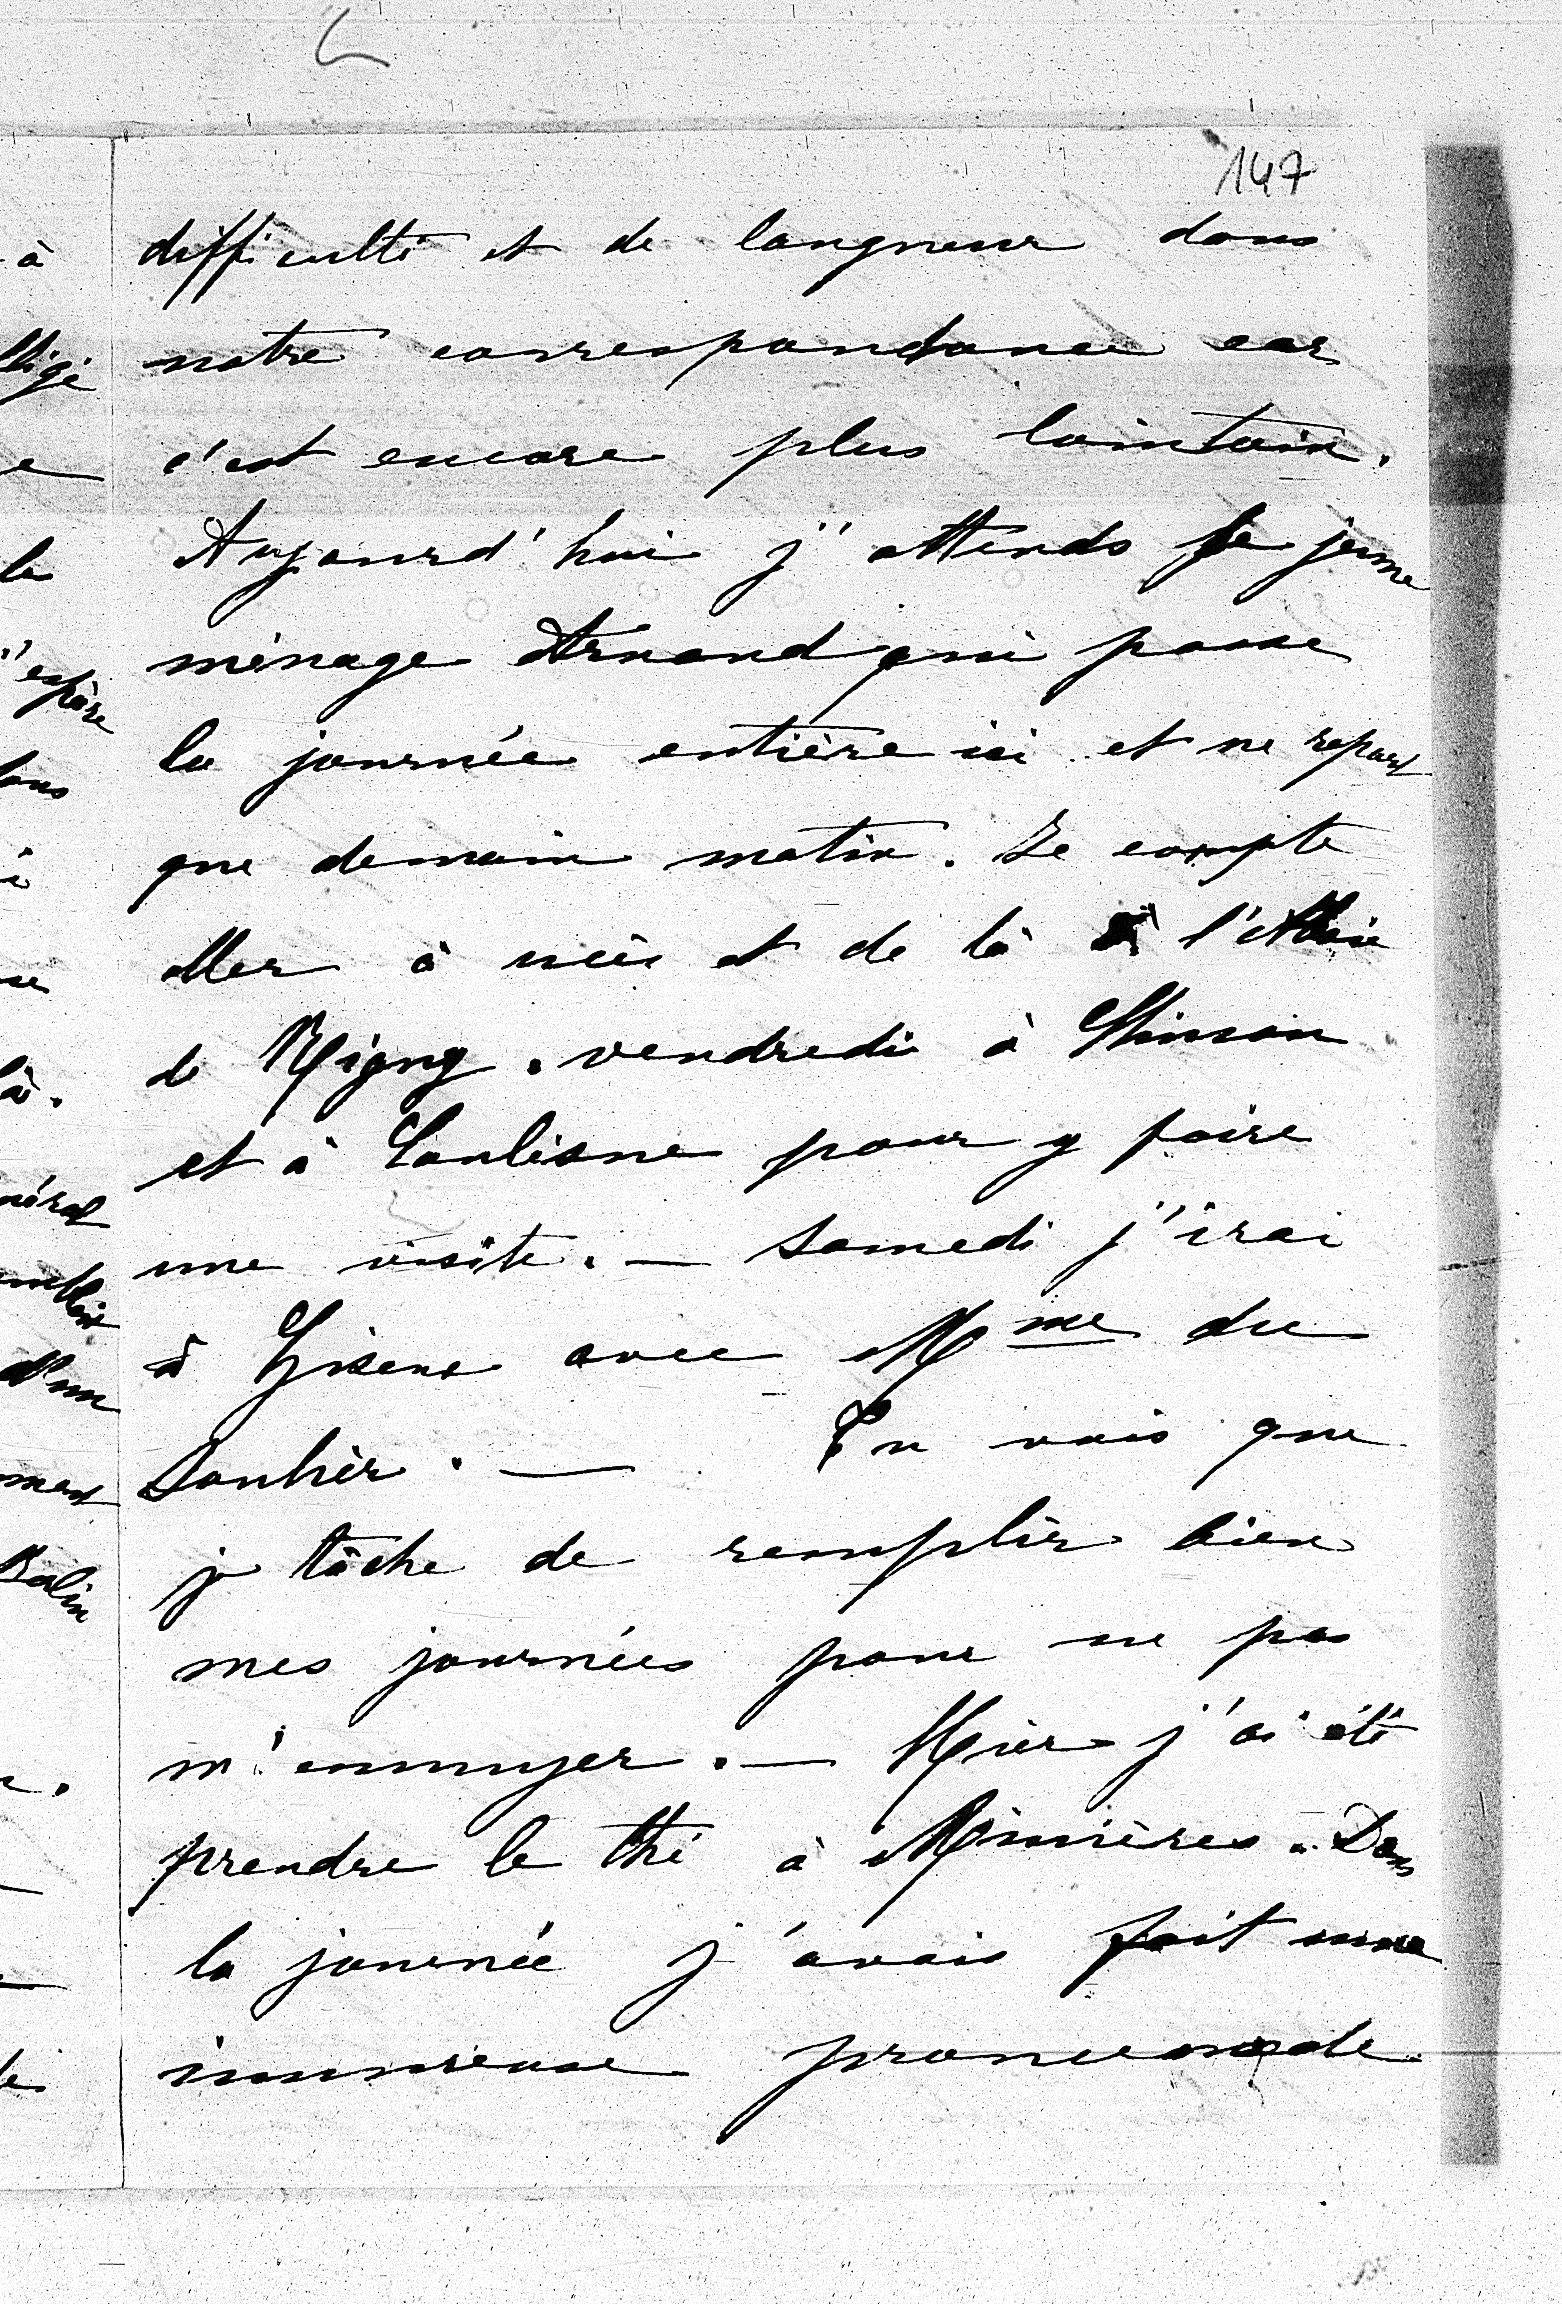 147
à
difficulté et de langueur dans
notre correspondance car
c'est encore plus lointain.
Aujourd'hui j'attends le jeune
ménage Armand qui passe
la journée entière ici et ne repart
que demain matin. Je compte
aller à et de là à
de Rigny. vendredi à Chinon
et à Coulisne pour y faire
une visite. — Samedi j'irai
à Gizeux avec Mme du
Soulier. — Tu vois que
je tâche de remplir bien
mes journées pour ne pas
m'ennuyer. — Hier j'ai été
prendre le thé à Minières. Dans
la journée j'avais fait une
immense promenade